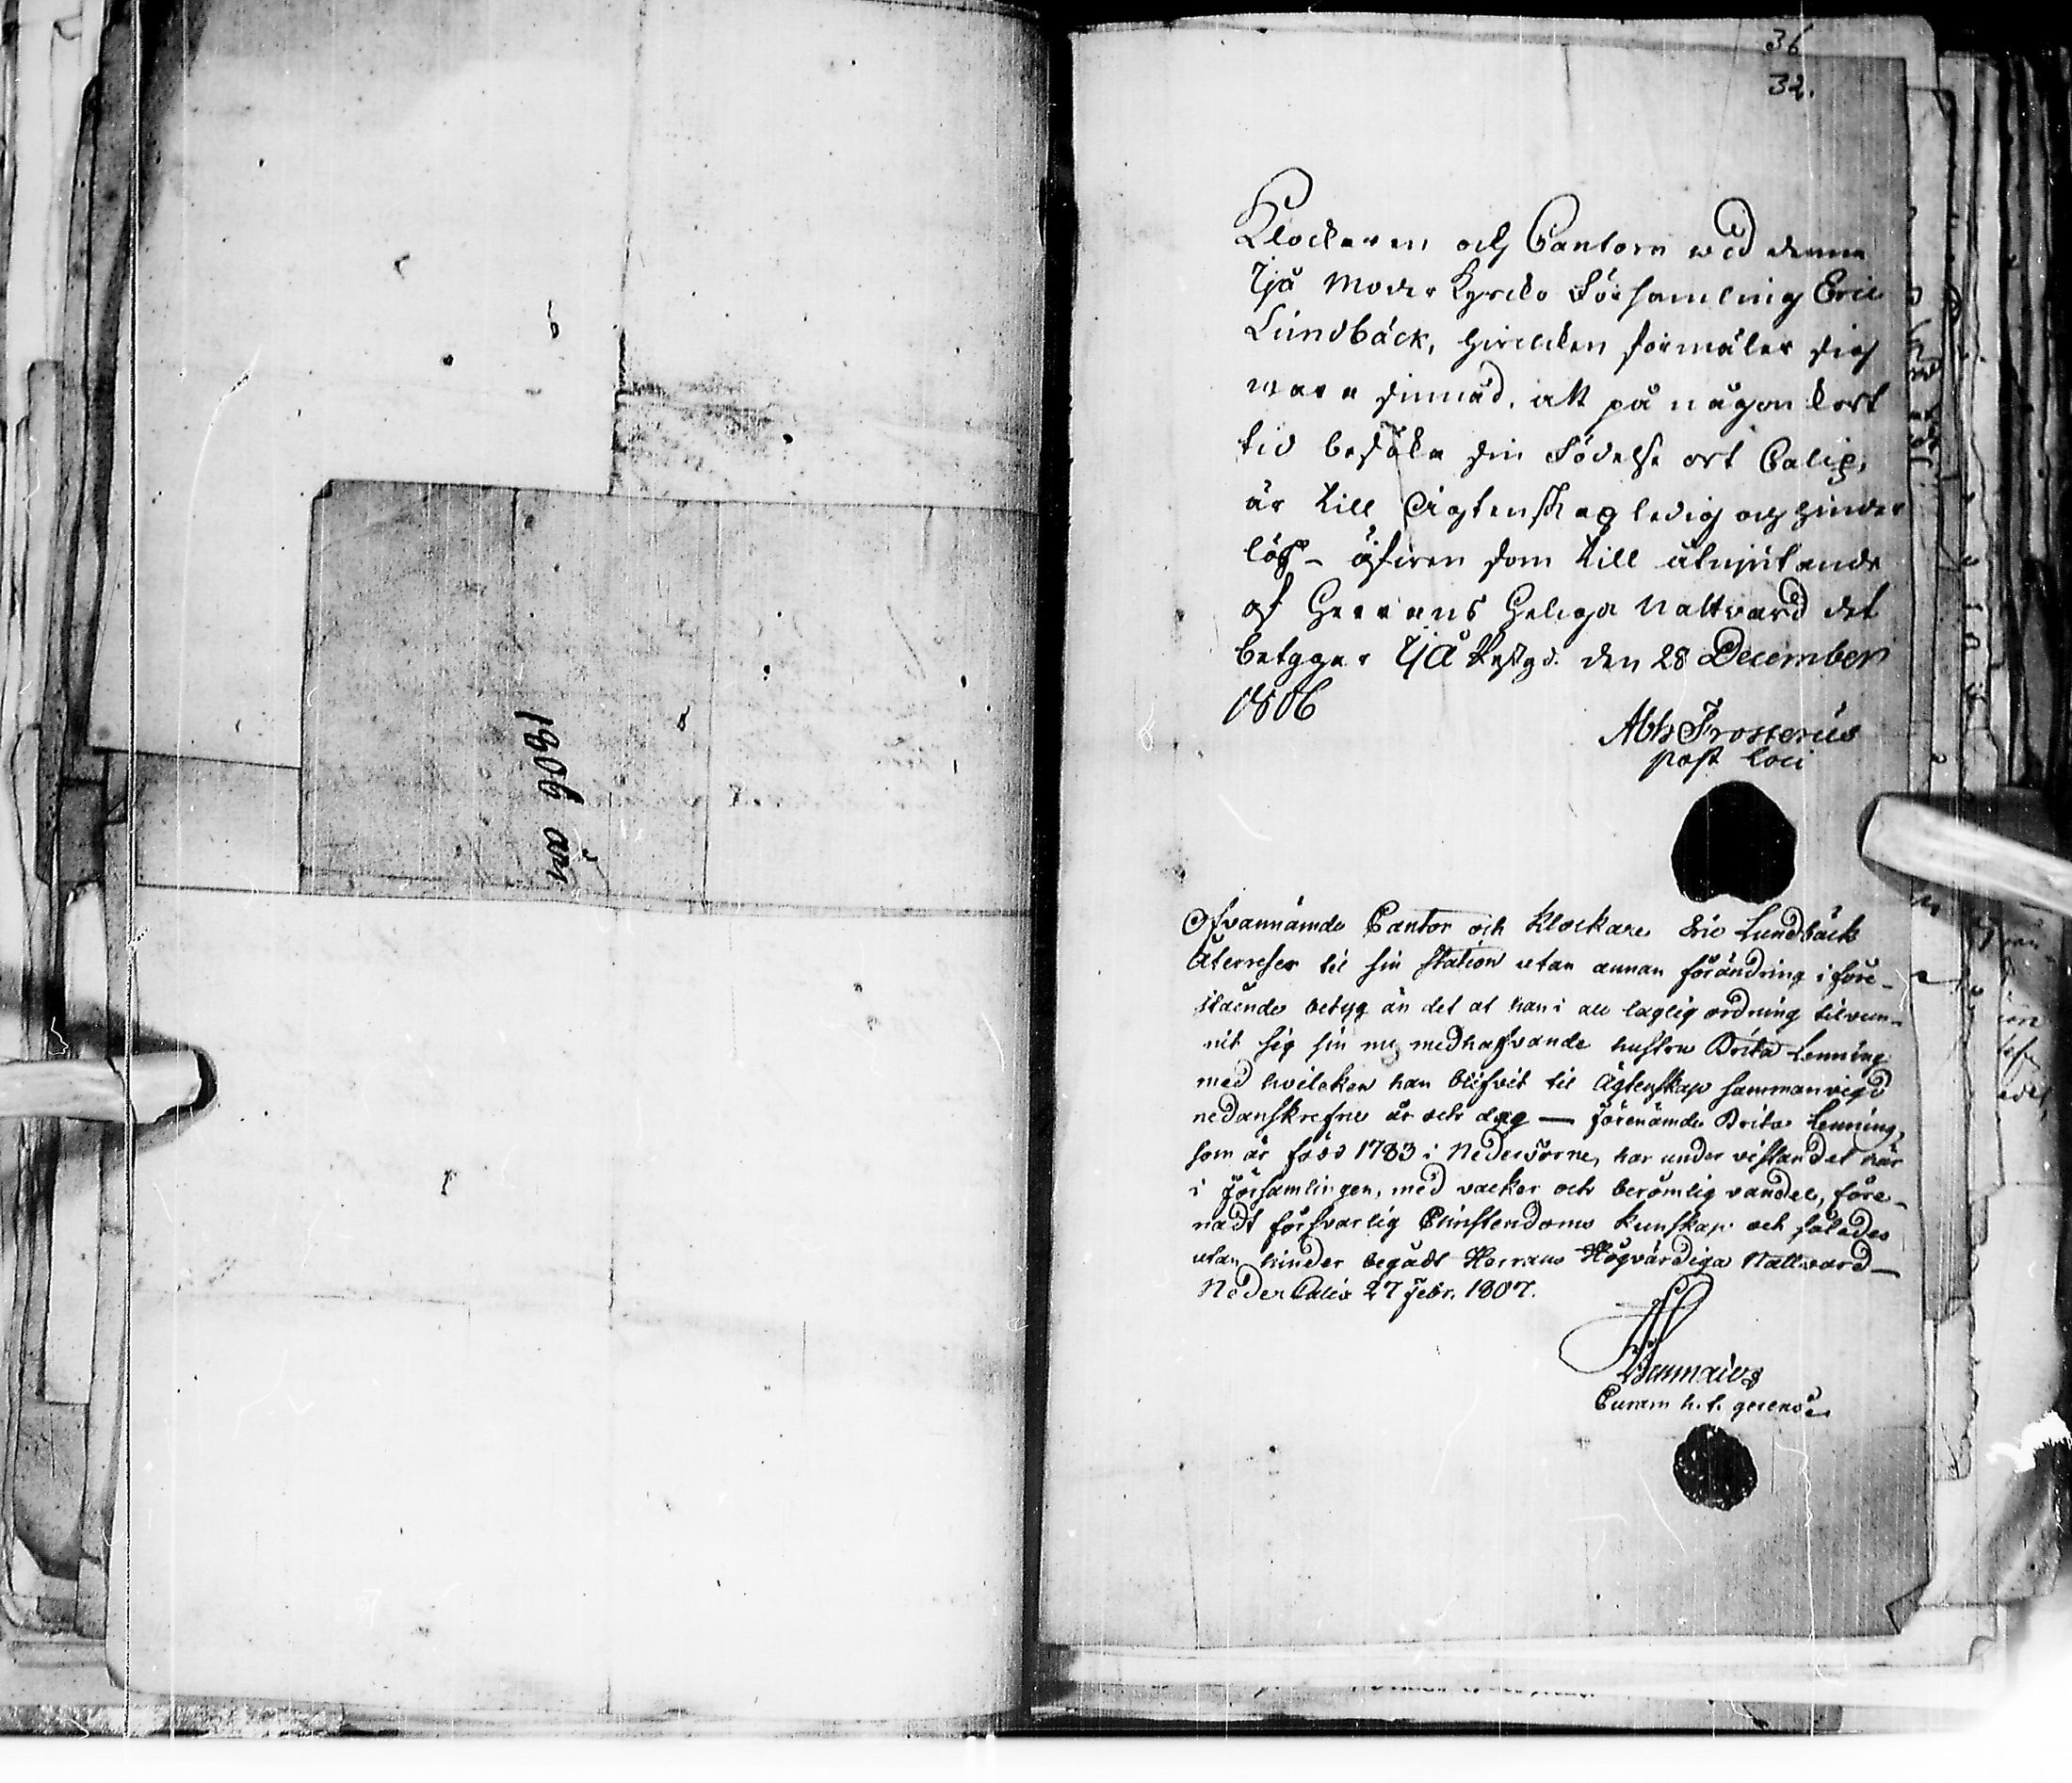 1806 års
36
32.
Klockaren och Cantorn wid denna
Ijå Moder Kyrcko Församling Eric
Lundbäck, hwilcken förmäler sig
wara sinnad, att på någon kort
tid besöka sin Födelse ort Calix,
är till Ächtenskap ledig och hinder
lös – äfwen som till åtnjutande
af Herrans Heliga Nattvard det
betygar Ijå Prestgd. den 28 December
1806
Abh Frosterus
past Loci
Ofvannämde Cantor och Klockare Eric Lundbäck
Återreser til sin station utan annan förändring i före-
stående betyg än det at han i all laglig ordning tilvun-
nit sig sin nu medhafvande hustru Brita Lenning
med hvilcken han blifvit til Ägtenskap sammanvigd
nedanskrefne år och dag — Förenämde Brita Lenning,
som är född 1783 i Neder Törne, har under vistandet här
i Församlingen, med vacker och berömlig vandel, före-
nadt försvarlig Christendoms kunskap och således
utan hinder begådt Herrans Högvärdiga Nattvard —
Neder Calix 27 Febr. 1807.
Curam h. t. gerens